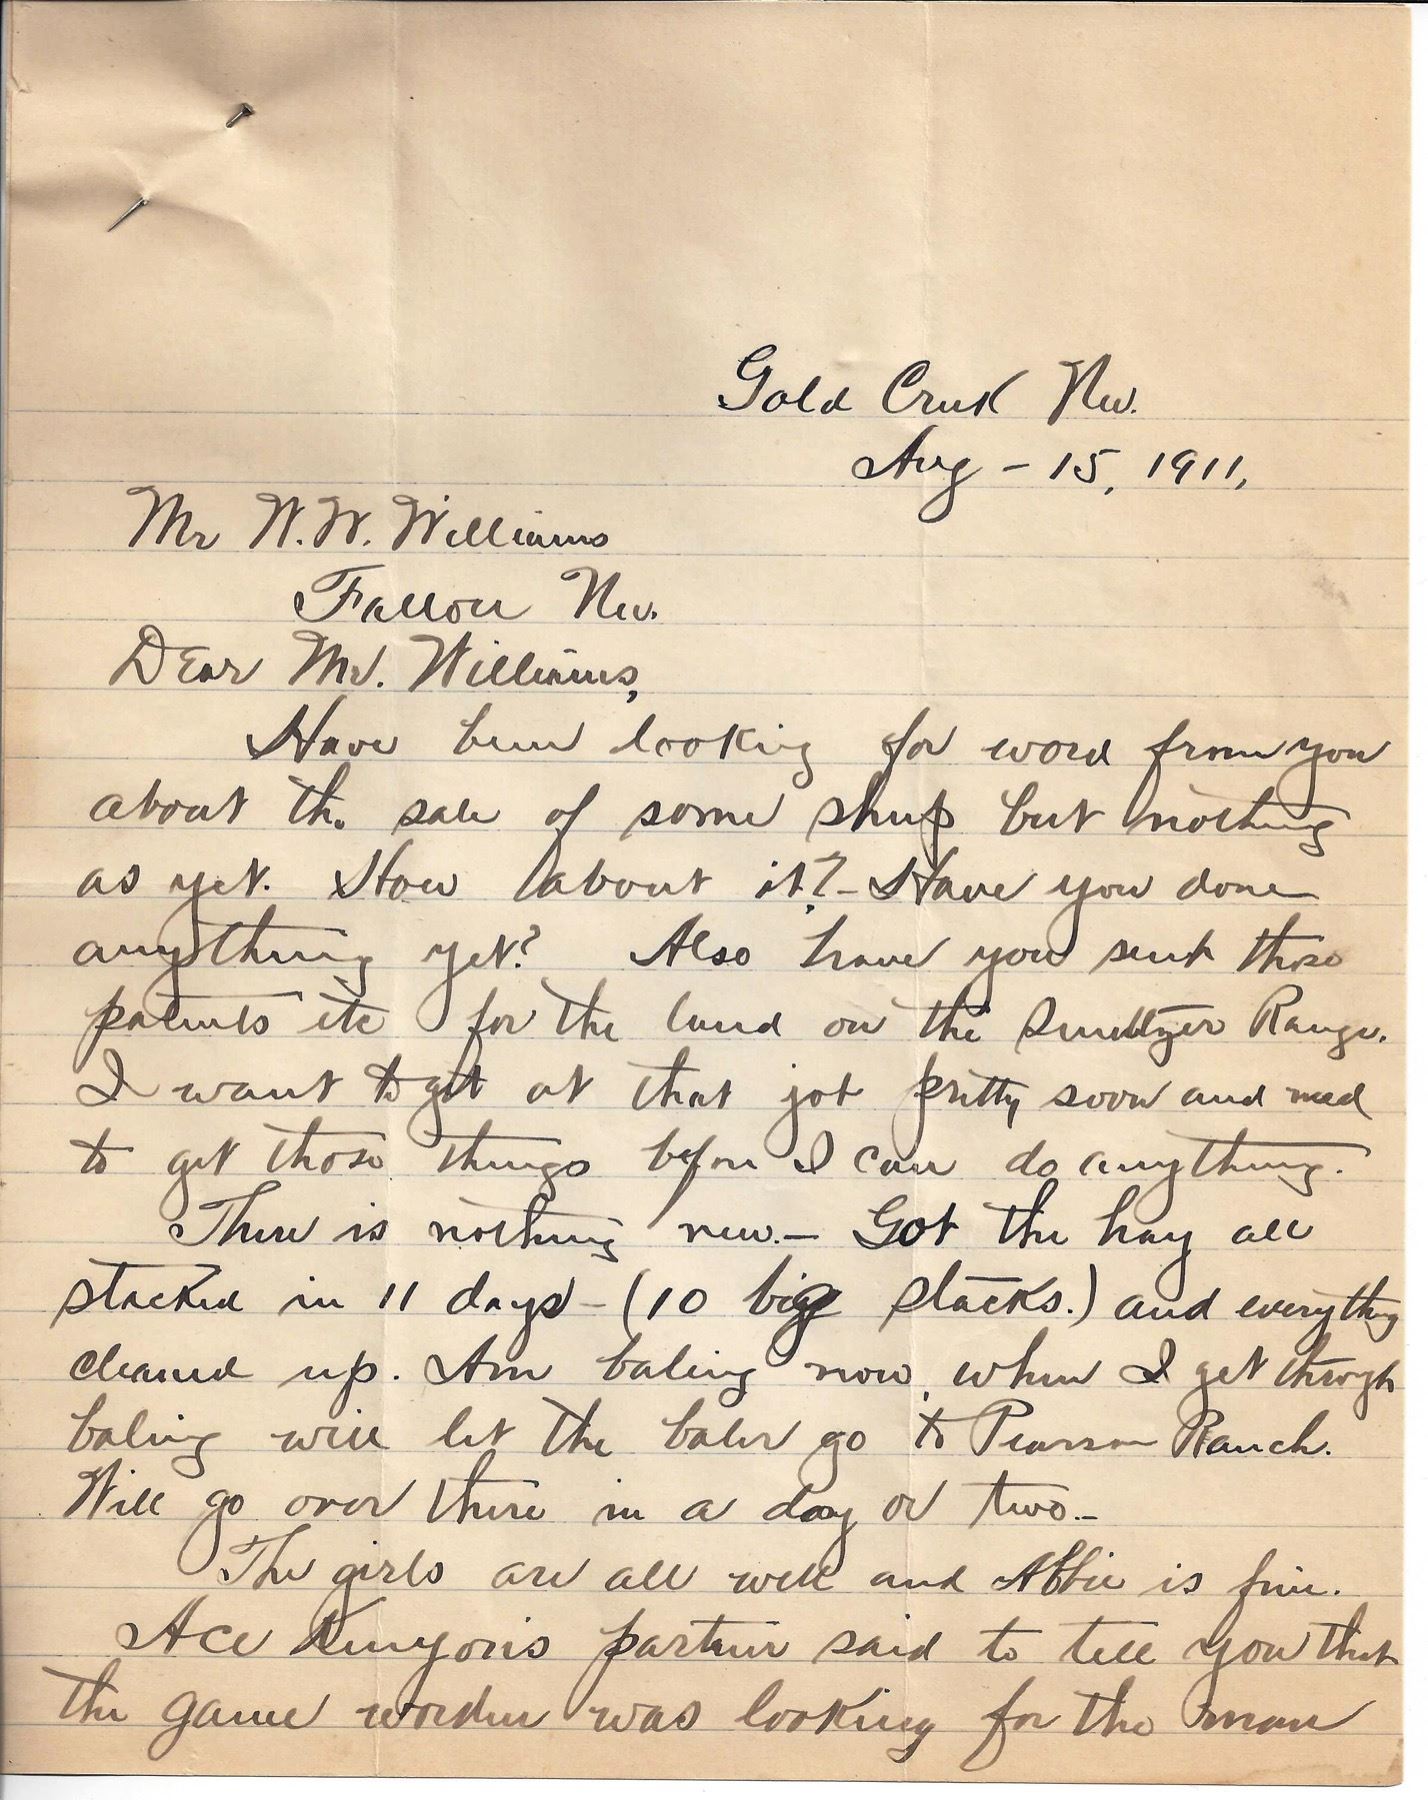 Gold Creek Nev.
Aug - 15, 1911,
Mr W. W. Williams
Fallon Nev.
Dear Mr. Williams,
Have been looking for word from you
about the sale of some sheep but nothing
as yet. How about it? - Have you done
anything yet? Also have you sent those
patents etc for the land on the Smeltzer Range.
I want to get at that job pretty soon and need
to get those things before I can do anything.
There is nothing new. - Got the hay all
stacked in 11 days - (10 big stacks.) and everything
cleaned up. Am baling now, when I get through
baling will let the baler go to Pearson Ranch.
Will go over there in a day or two. -
The girls are all well and Abbie is fine.
Ace Kenyon's partner said to tell you that
the game warden was looking for the man